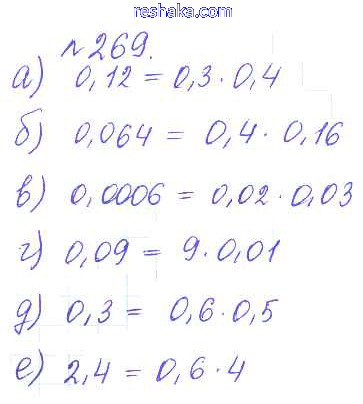 reshaka.com
№269.
а) 0,12 = 0,3 · 0,4
б) 0,064 = 0,4 · 0,16
в) 0,0006 = 0,02 · 0,03
г) 0,09 = 9 · 0,01
д) 0,3 = 0,6 · 0,5
е) 2,4 = 0,6 · 4